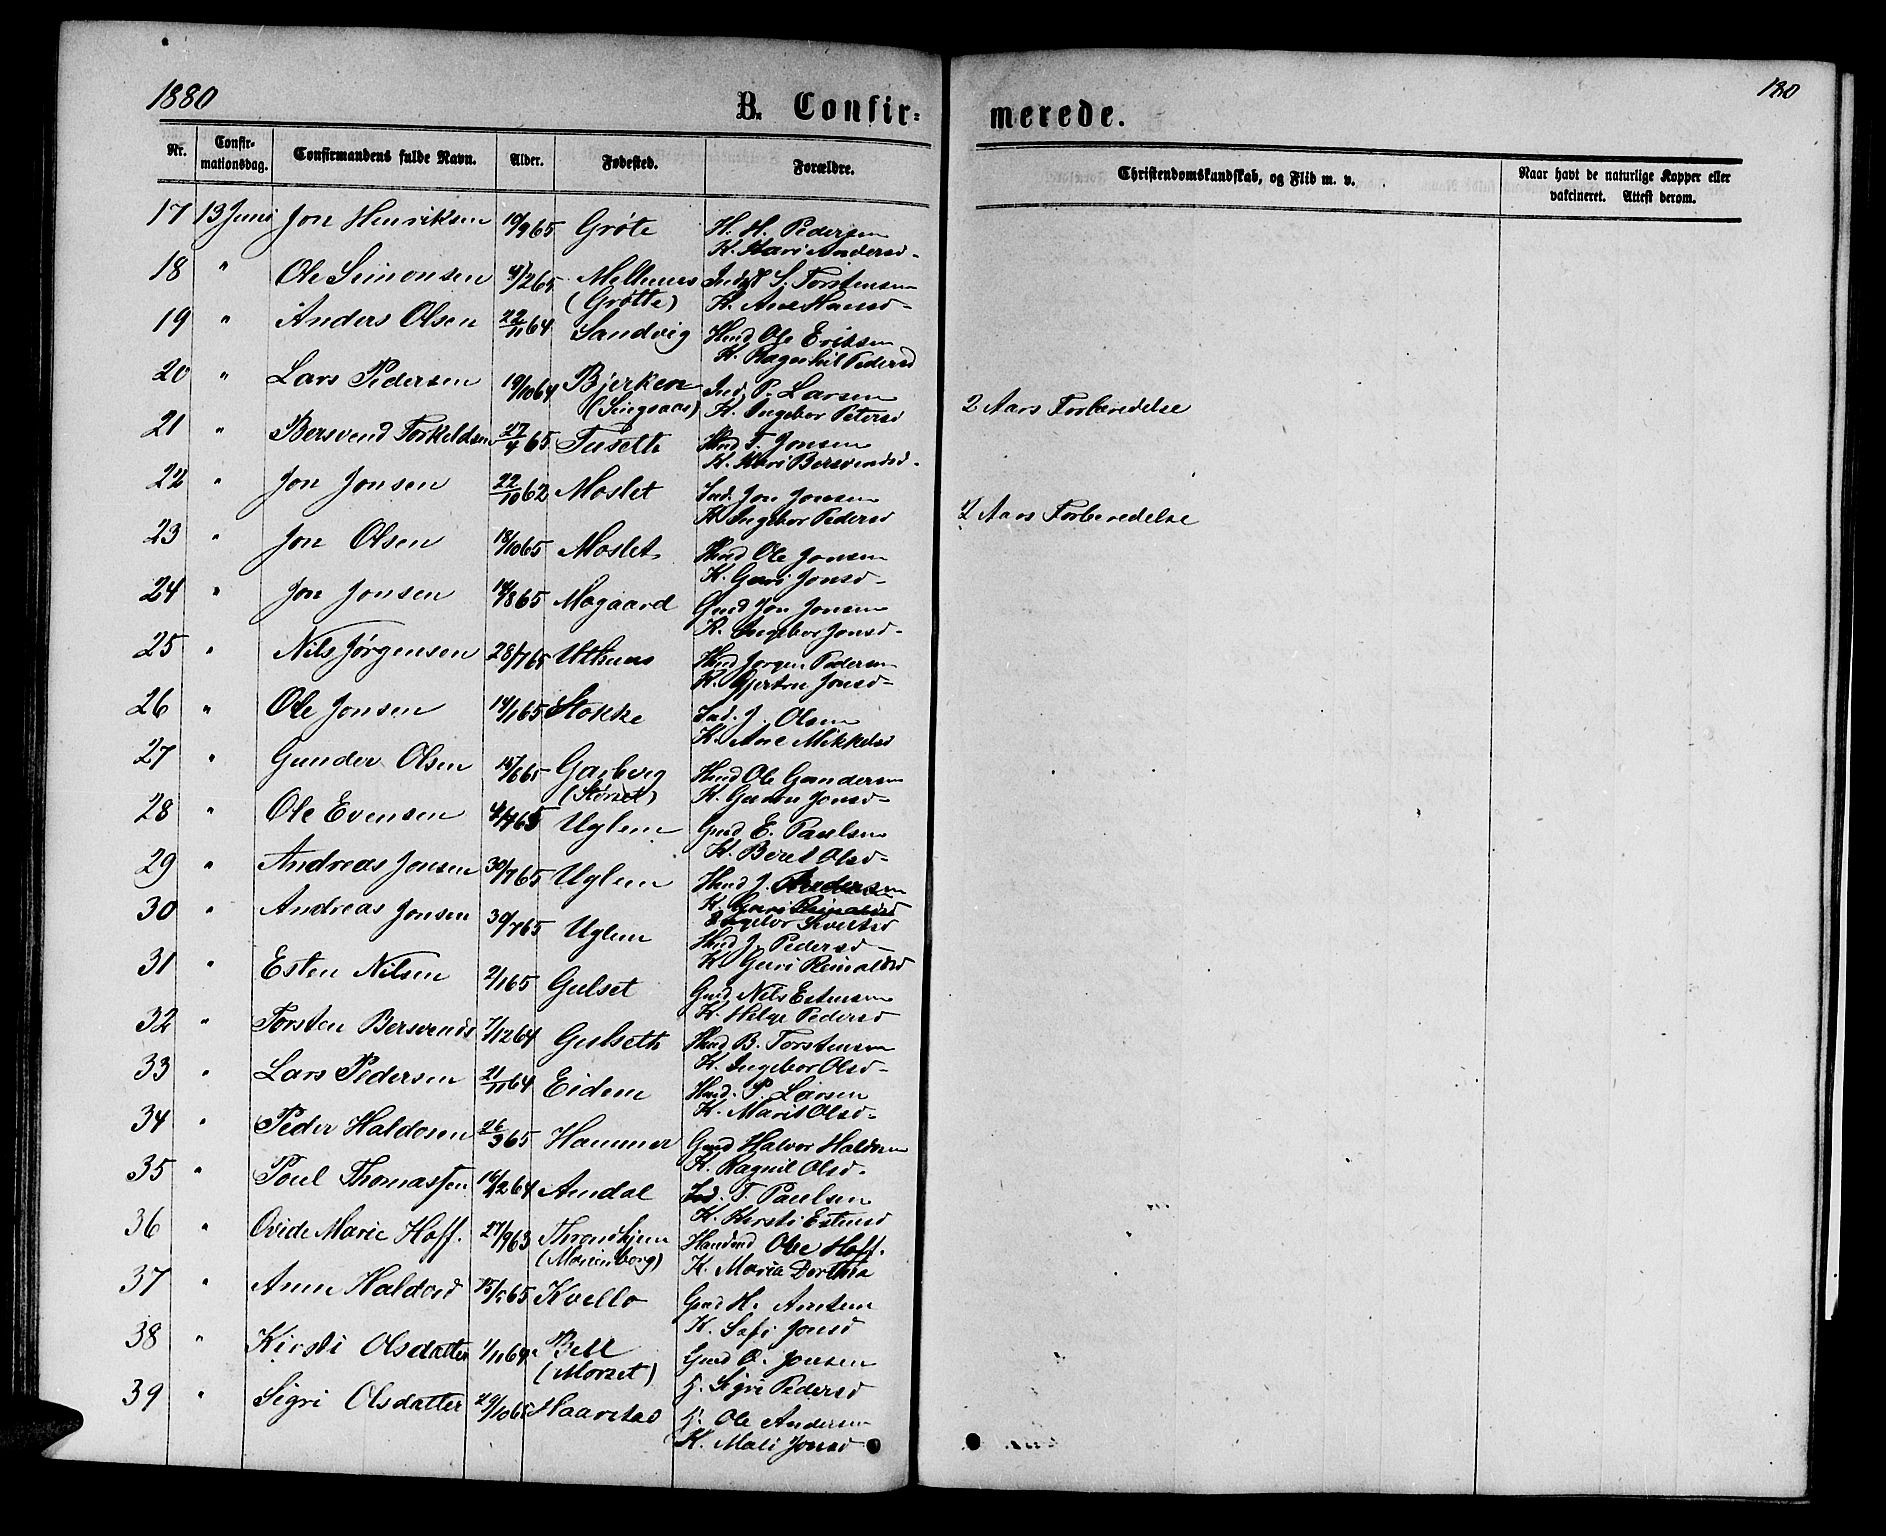 1880
180
B. Confir-
merede.
Nr. Confirmationsdag. Confirmandens fulde Navn. Alder. Fødested. Forældre. Christendomskundskab, og Flid m. v. Naar havt de naturlige Kopper eller vakcineret. Attest derom.
17 13 Juni Jon Henriksen 10/9 65 Grøte H. H. Pedersen
K. Kari Andersd-
18 " Ole Simonsen /2 65 Melhuus S. Torstensen
(Grøtte) K. Ane Hansd-
19 " Anders Olsen 22/11 64 Sandvig Husd Ole Eriksen
K. Ragnhil Pedersd
20 " Lars Pedersen 19/10 64 Bjerken Ind. P. Larsen
(Singsaas) K. Ingebor Petersd 2 Aars Forberedelse
21 " Bersvend Torkeldsen 27/4 65 Tusetth Husd T. Jonsen
K. Kari Bersvendsd.
22 " Jon Jonsen 22/10 62 Moslet Ind. Jon Jonsen
K Ingebor Pedersd 2 Aars Forberedelse
23 " Jon Olsen 18/10 65 Moslet Husd Ole Jonsen
K. Guri Jonsd-
24 " Jon Jonsen /8 65 Mogaard Gmd Jon Jonsen
K. Ingebor Jonsd-
25 " Nils Jørgensen 28/7 65 Uthuus Husd Jørgen Pedersen
K. Gjertru Jonsd-
26 " Ole Jonsen 14/1 65 Stokke Ind. J. Olsen
K. Ane Mikkelsd
27 " Gunder Olsen /6 65 Garbergg Husd Ole Gundersen
(Størset) K. Jonsd-
28 " Ole Evensen /7 65 Uglem Gmd E. Paulsen
K. Beret Olsd-
29 " Andreas Jonsen 30/7 65 Uglem Husd J. Andersen
K. Guri Reinaldsd
Ingebor Sivertsd
30 " Andreas Jonsen 30/7 65 Uglem Husd J. Pedersd
K. Guri Reinaldsd
31 " Esten Nilsen 2/1 65 Gulset Gmd Nils Estensen
K. Helge Pedersd
32 " Torsten Bersvends 7/12 64 Gulseth Husd B. Torstensen
K. Ingebor Olsd-
33 " Lars Pedersen 21/11 64 Eidem Husd. P. Larsen
K. Marit Olsd-
34 " Peder Haldosen 26/3 65 Hammer Gmd Halvor Haldosen
K. Ragnil Olsd.
35 " Poul Thomassen 16/12 64 Amdal Ind. T. Paulsen
K. Kirsti Estensd
36 " Ovide Marie Hoff. 27/9 63 Throndhjem Handlend Ole Hoff.
(Marienborg) K. Maria Dorthea
37 " Ane Haldosd 15/ 65 Kvello Gmd H. Arntsen
K. Sofi Jonsd
38 " Kirsti Olsdatter 1/11 64 Bell Gmd O. Jonsen
(Morset) K. Sigri Pedersd
39 " Sigri Olsdatter /10 65 Haarstad G. Ole Andersen
K. Mali Jonsd